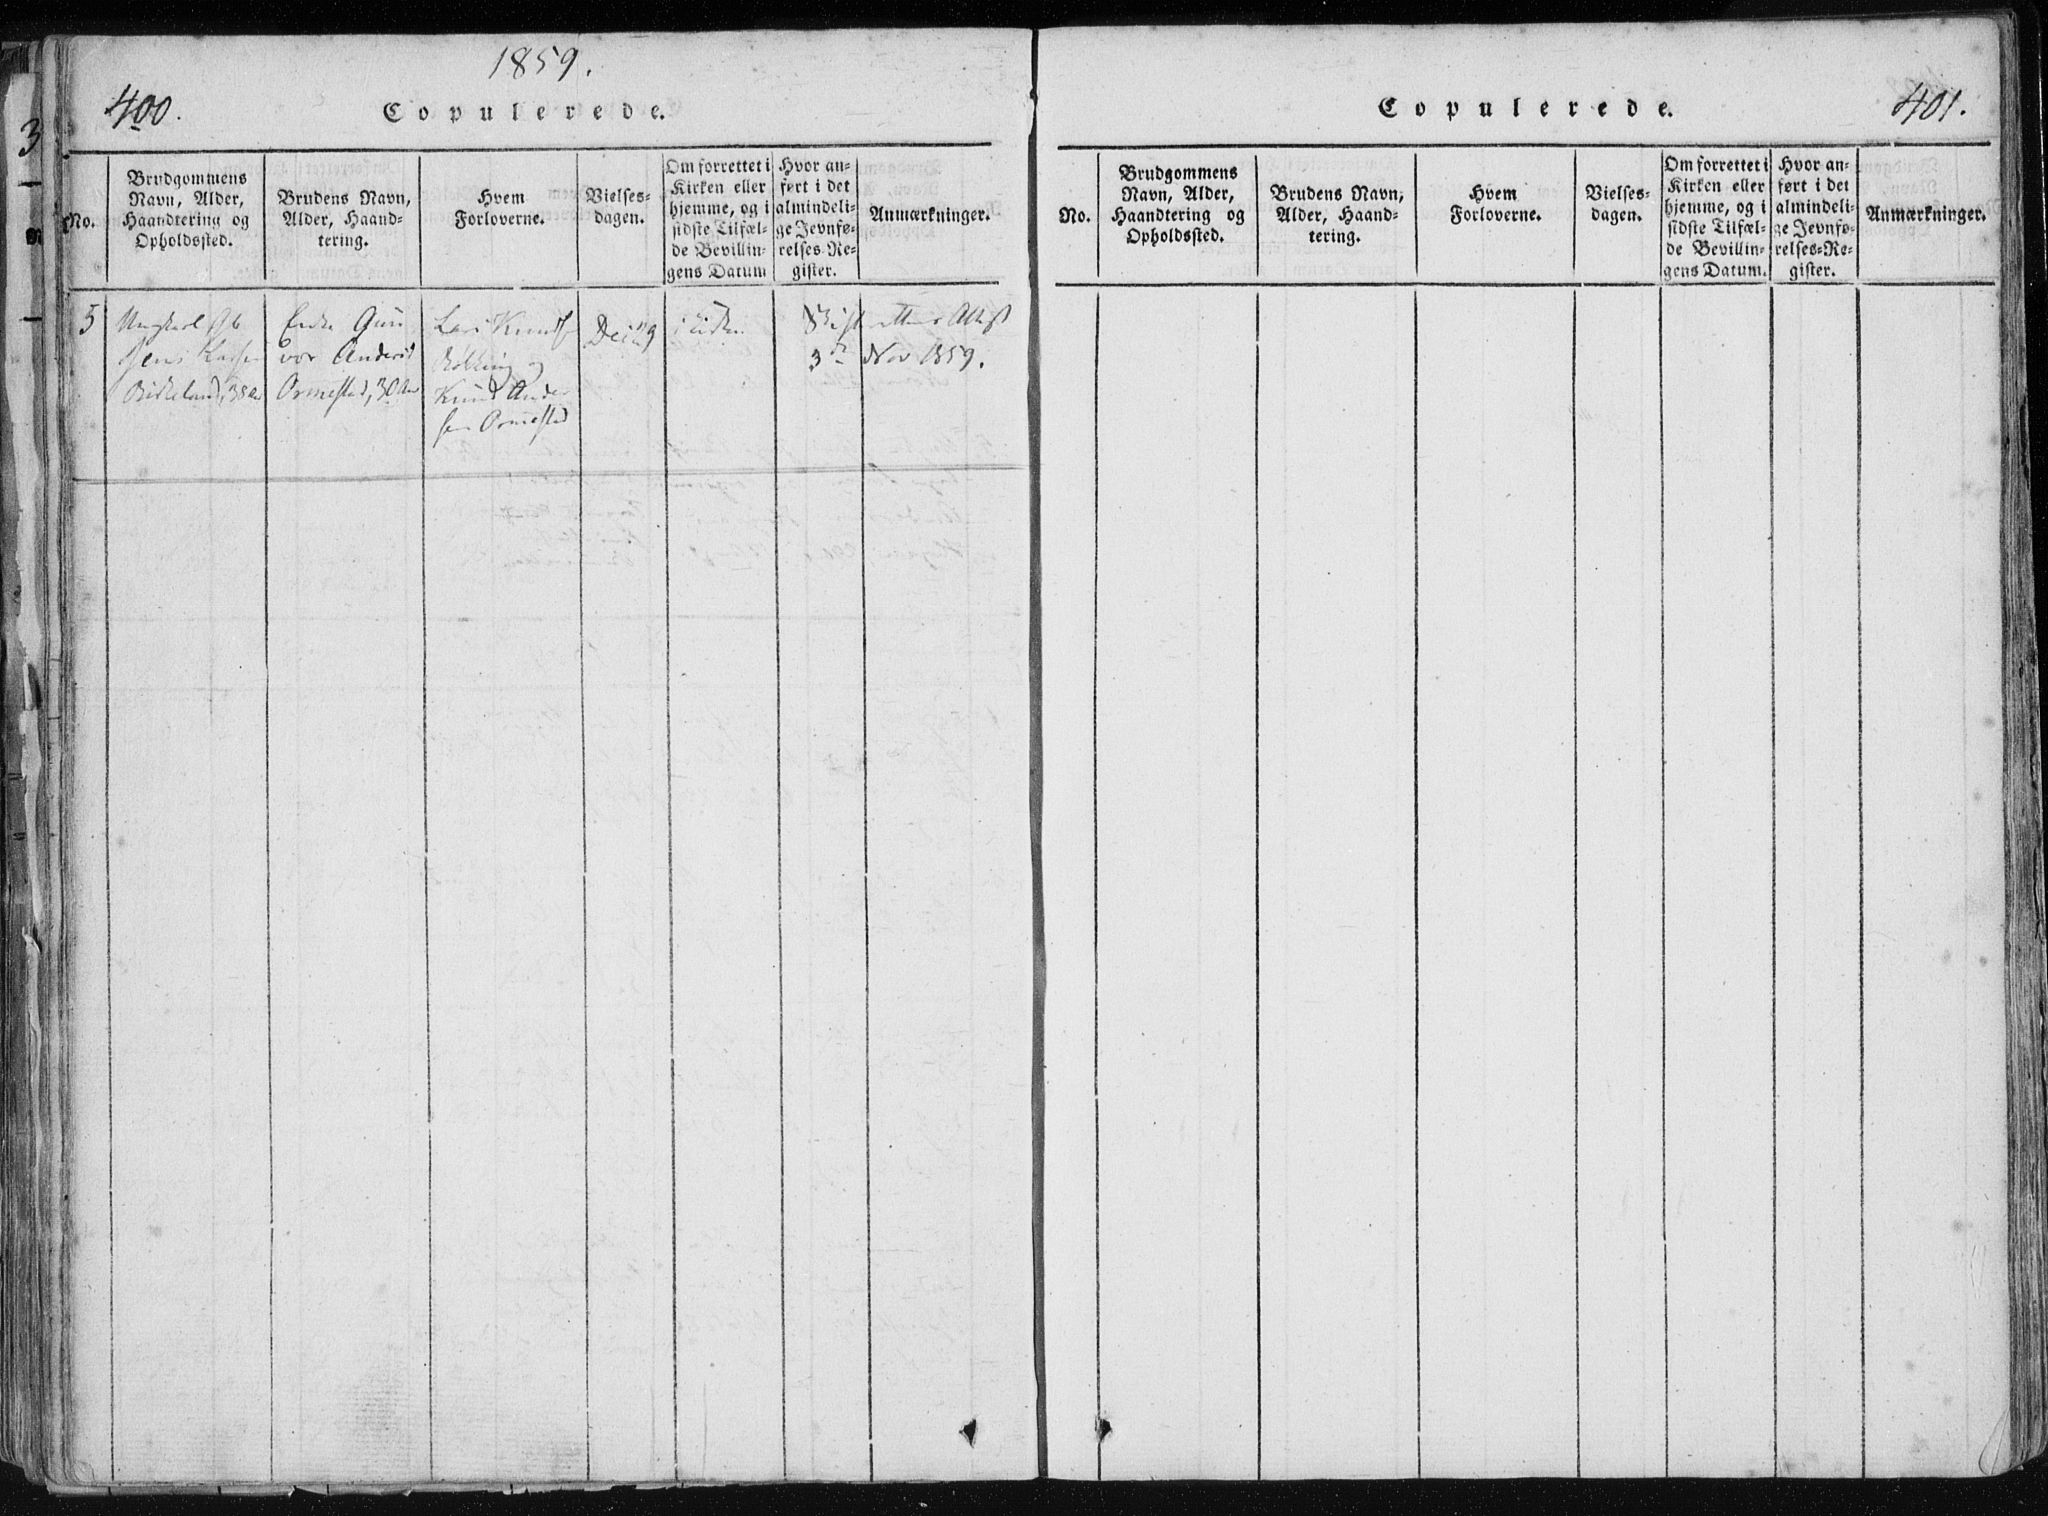 1859.
400.
Copulerede.
No.
Brudgommens
Navn, Alder,
Haandtering og
Opholdssted.
Brudens Navn,
Alder, Haand-
tering.
Hvem
Forloverne.
Vielses-
dagen.
Om forrettet i
Kirken eller
hjemme, og i
sidste Tilfæl-
de Bevillin-
gens Datum
Hvor an-
ført i det
almindeli-
ge Jevnfø-
relses-Re-
gister.
Anmærkninger.
5
Ungkarl
Jens
Birkeland, 38 Aar
Enke Gun
vor Andersd
Ormestad, 30 Aar
Lars Knuds
og
Knud Ander
sen Ormestad
9
i Kirken
Skifterettens Attest
3die Nov 1859.
Copulerede.
401.
No.
Brudgommens
Navn, Alder,
Haandtering og
Opholdssted.
Brudens Navn,
Alder, Haand-
tering.
Hvem
Forloverne.
Vielses-
dagen.
Om forrettet i
Kirken eller
hjemme, og i
sidste Tilfæl-
de Bevillin-
gens Datum.
Hvor an-
ført i det
almindeli-
ge Jevnfø-
relses-Re-
gister.
Anmærkninger.